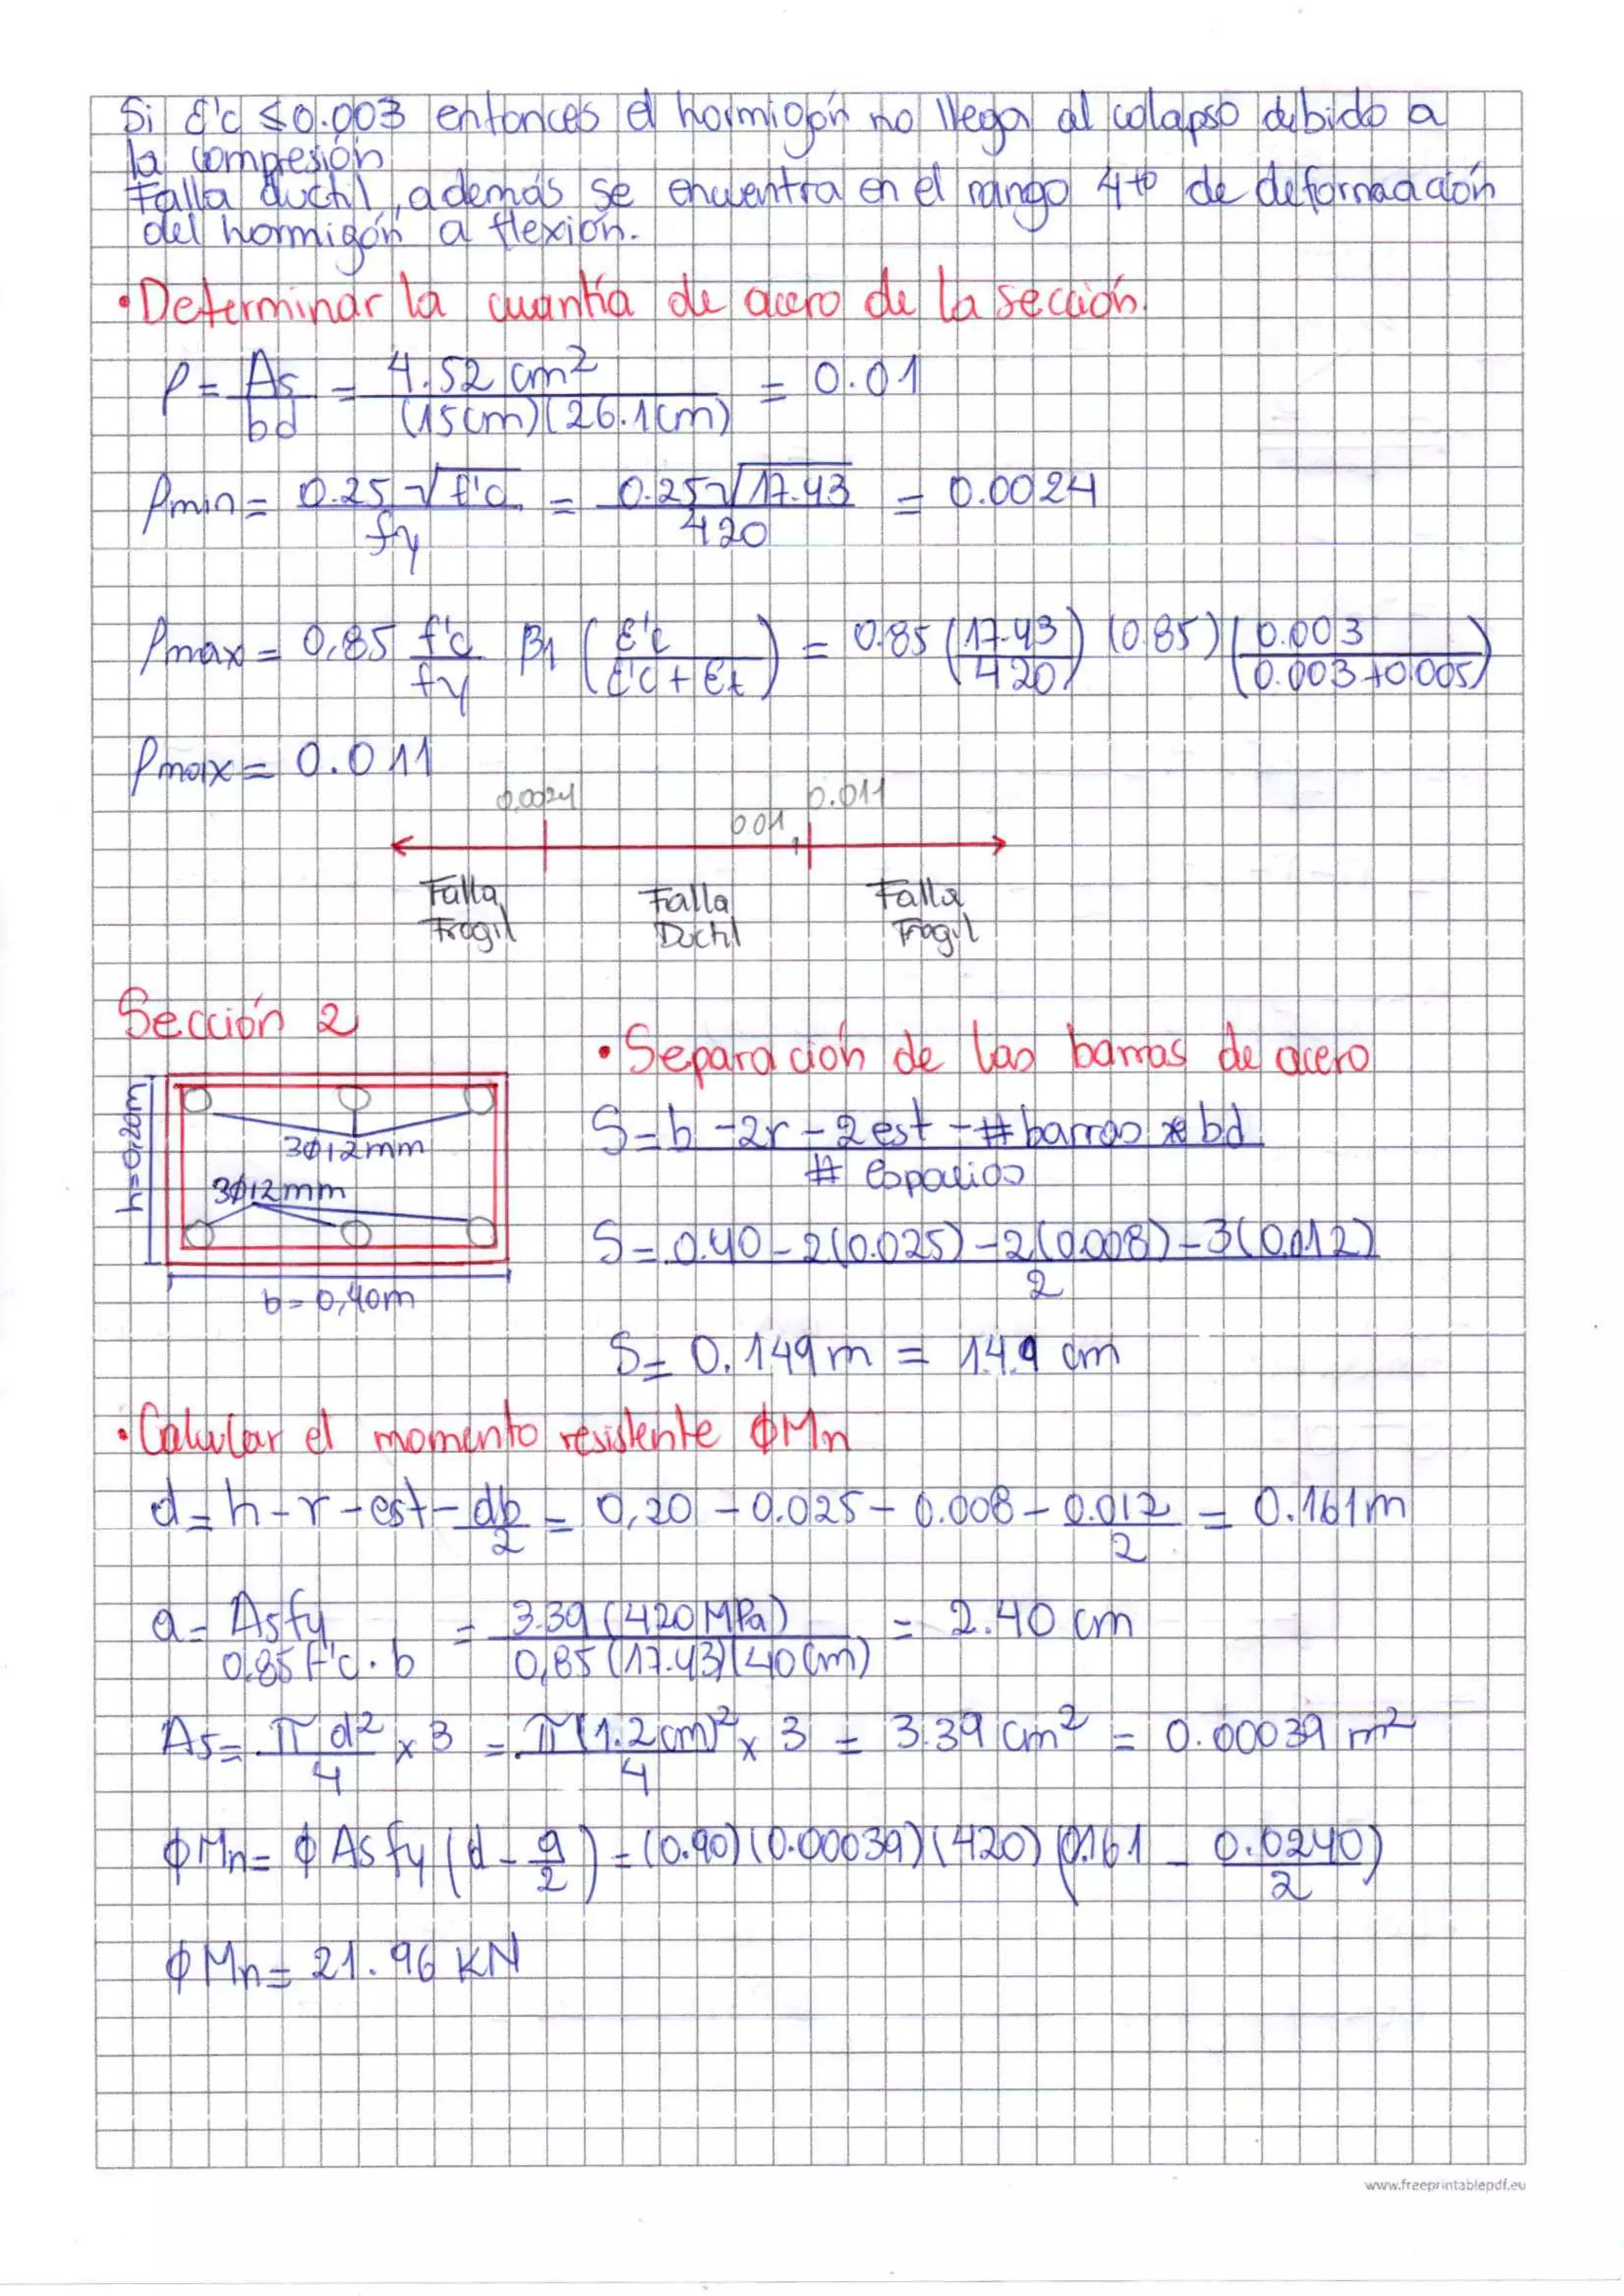 Si ε'c ≤0.003 entonces el hormigón no llega al colapso debido a
la compresión
Falla ductil, además se encuentra en el rango 4to de deformaación
del hormigón a flexión.
• Determinar la cuantía de acero de la sección.
ρ = As/bd = 4.52 cm²/(15cm)(26.1cm) = 0.01
ρmin = 0.25√f'c/fy = 0.25√17.43/420 = 0.0024
ρmax = 0.85 f'c/fy β1 (ε'c/(ε'c+εt)) = 0.85 (17.43/420) (0.85) (0.003/(0.003+0.005))
ρmax = 0.011
0.0024 0.01 0.011
Falla Frágil Falla Ductil Falla Fragil
Sección 2
h=0,20m
3Φ12mm
3Φ12mm
b=0,40m
• Separación de las barras de acero
S = (b-2r-2est-#barras*bd)/# espacios
S = (0.40-2(0.025)-2(0.008)-3(0.012))/2
S = 0.149m = 14.9 cm
• Calcular el momento resistente ΦMn
d = h-r-est-db/2 = 0,20-0.025-0.008-0.012/2 = 0.161m
a = Asfy/0.85 f'c.b = 3.39(420MPa)/0,85(17.43)(40cm) = 2.40 cm
As = πd²/4 x 3 = π(1.2cm)²/4 x 3 = 3.39 cm² = 0.00039 m²
ΦMn = Φ As fy (d-a/2) = (0.90)(0.00039)(420)(0.161-0.0240/2)
ΦMn = 21.96 KN
www.freeprintablepdf.eu